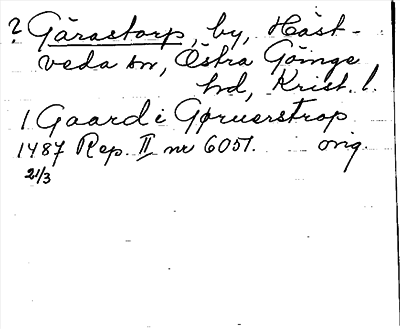 ? Gärastorp, by, Häst-
veda sn, Östra Göinge
hd, Krist. l.
1 Gaard i Gøruerstrop
1487 Rep. II nr 6051. orig.
21/3